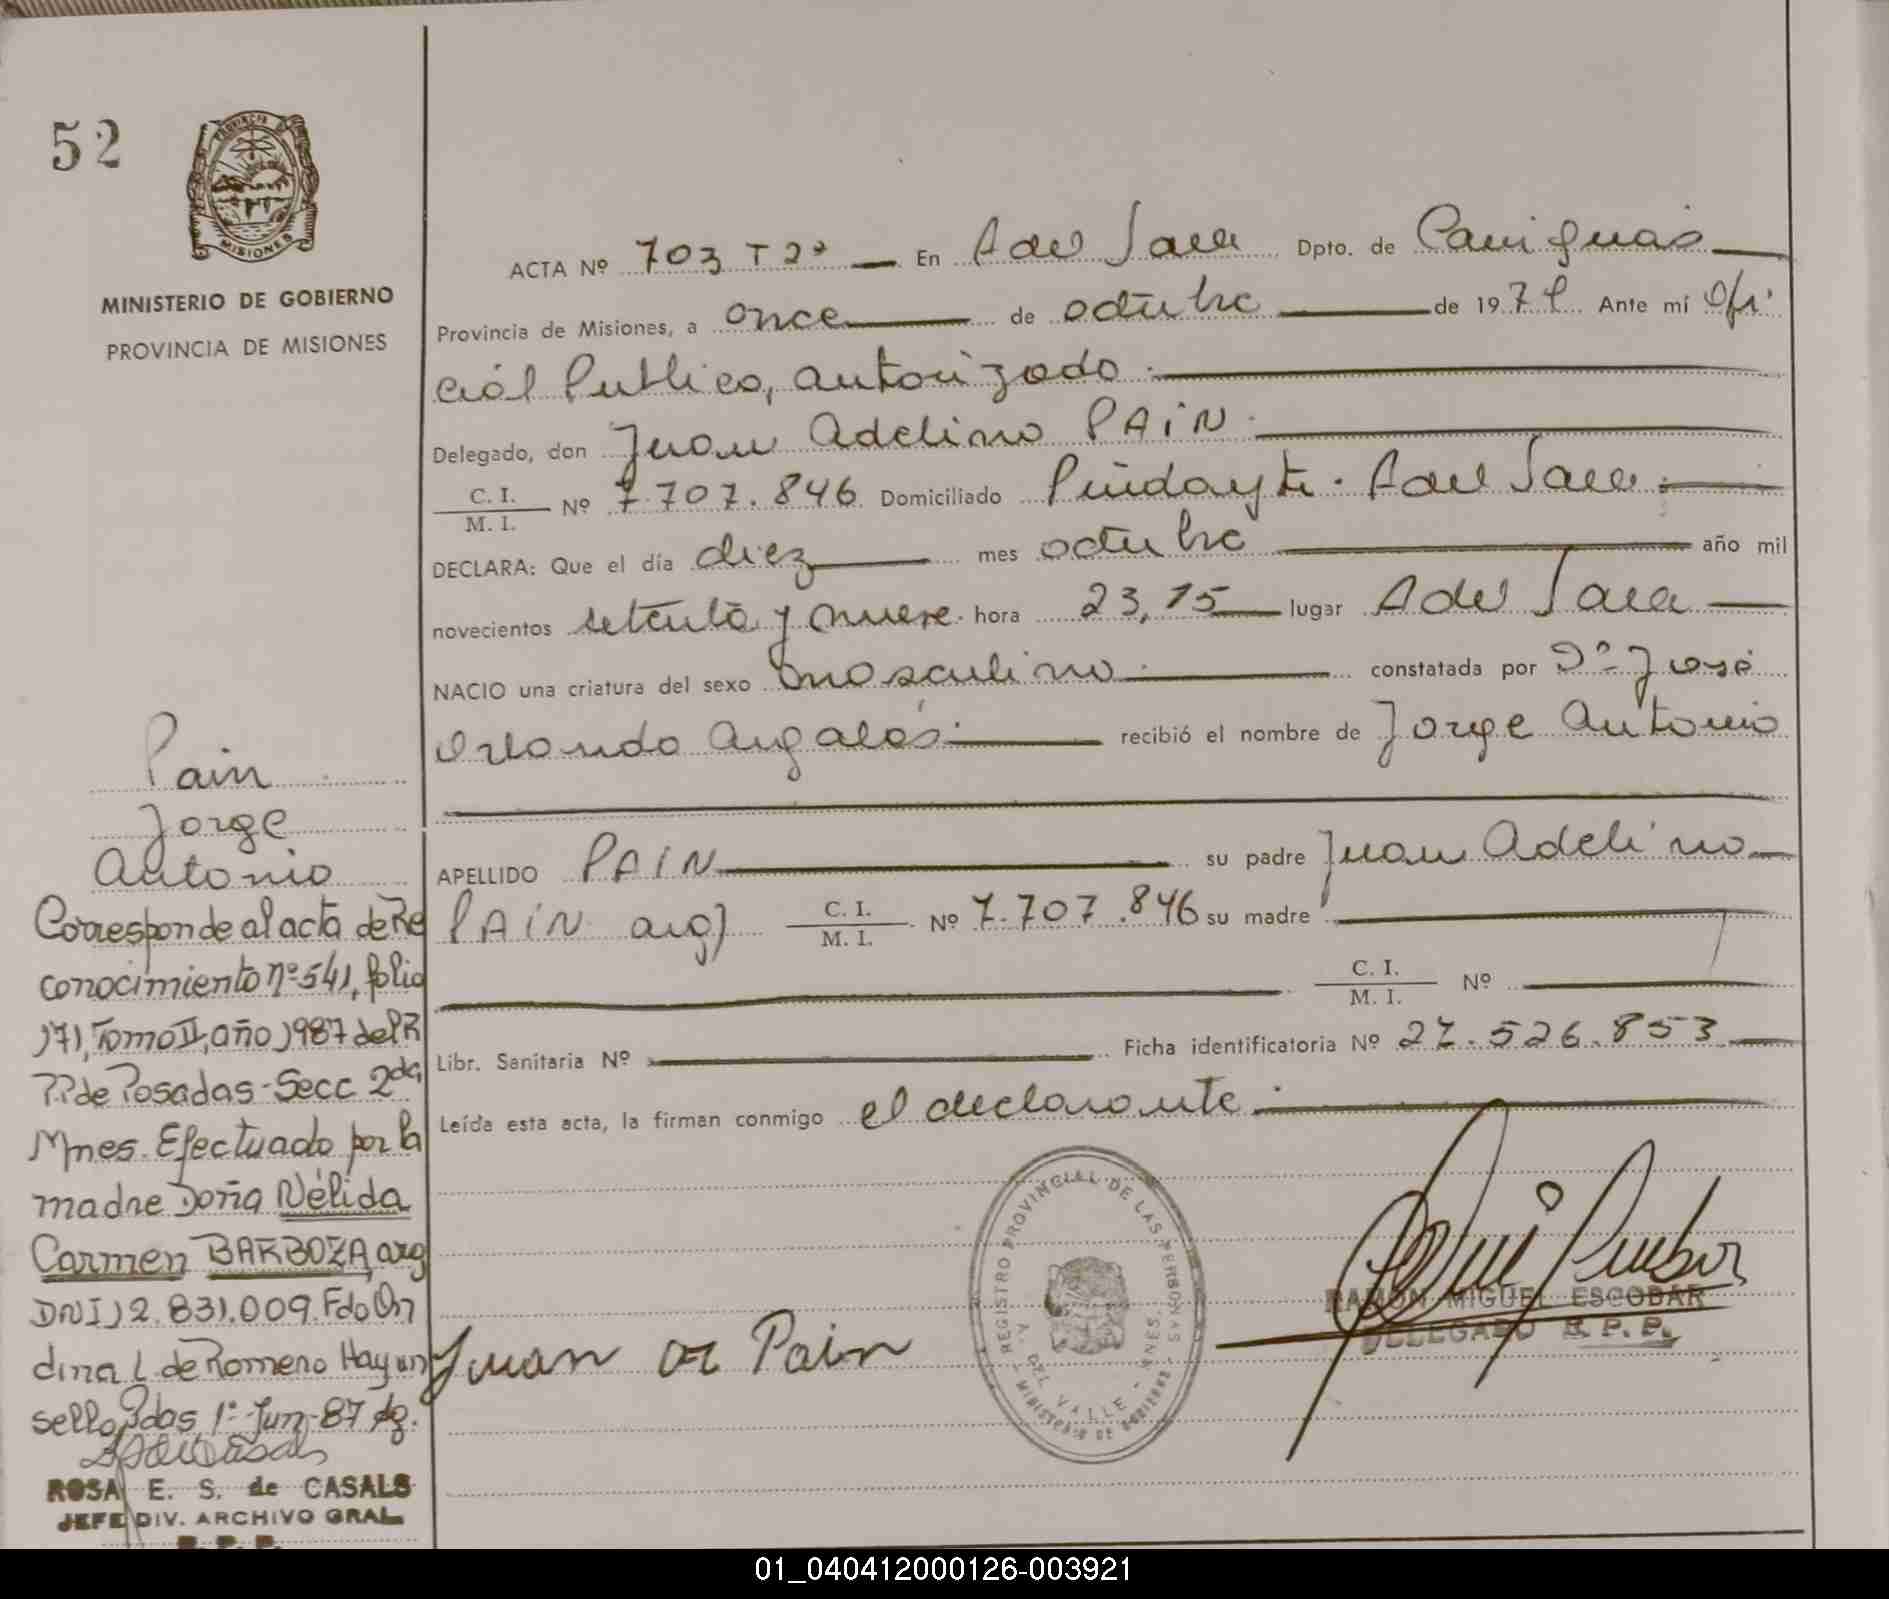 52
PROVINCIA
MISIONES
MINISTERIO DE GOBIERNO
PROVINCIA DE MISIONES
ACTA Nº 703 T 2º En A del Valle Dpto. de Cainguás
Provincia de Misiones, a once de octubre de 1979 Ante mí Ofi
cial Publico, autorizado
Delegado, don Juan Adelino PAIN
C. I. / M. I. Nº 7.707.846 Domiciliado Pindayti. A del Valle
DECLARA: Que el día diez mes octubre año mil
novecientos setenta y nueve hora 23,15 lugar A del Valle
NACIO una criatura del sexo masculino constatada por Dº José
Orlando recibió el nombre de Jorge Antonio
APELLIDO PAIN su padre Juan Adelino
PAIN arg) C. I. / M. I. Nº 7.707.846 su madre
C. I. / M. I. Nº
Libr. Sanitaria Nº Ficha identificatoria Nº 27.526.853
Leída esta acta, la firman conmigo el declarante
Pain
Jorge
Antonio
Corresponde al acta de Re
conocimiento nº 541, folio
171, Tomo II, año 1987 del R
PP de Posadas - Secc 2da
Mnes. Efectuado por la
madre Doña Nélida
Carmen BARBOZA, arg
DNI 12.831.009. Fdo On
dina L. de Romero Hay un
sello Pdas 1º-Jun-87
ROSA E. S. de CASALS
JEFE DIV. ARCHIVO GRAL.
R.P.P.
Juan A Pain
REGISTRO PROVINCIAL DE LAS PERSONAS
A. DEL VALLE - MNES.
MINISTERIO DE GOBIERNO
RAMON MIGUEL ESCOBAR
DELEGADO R. P. P.
01_040412000126-003921